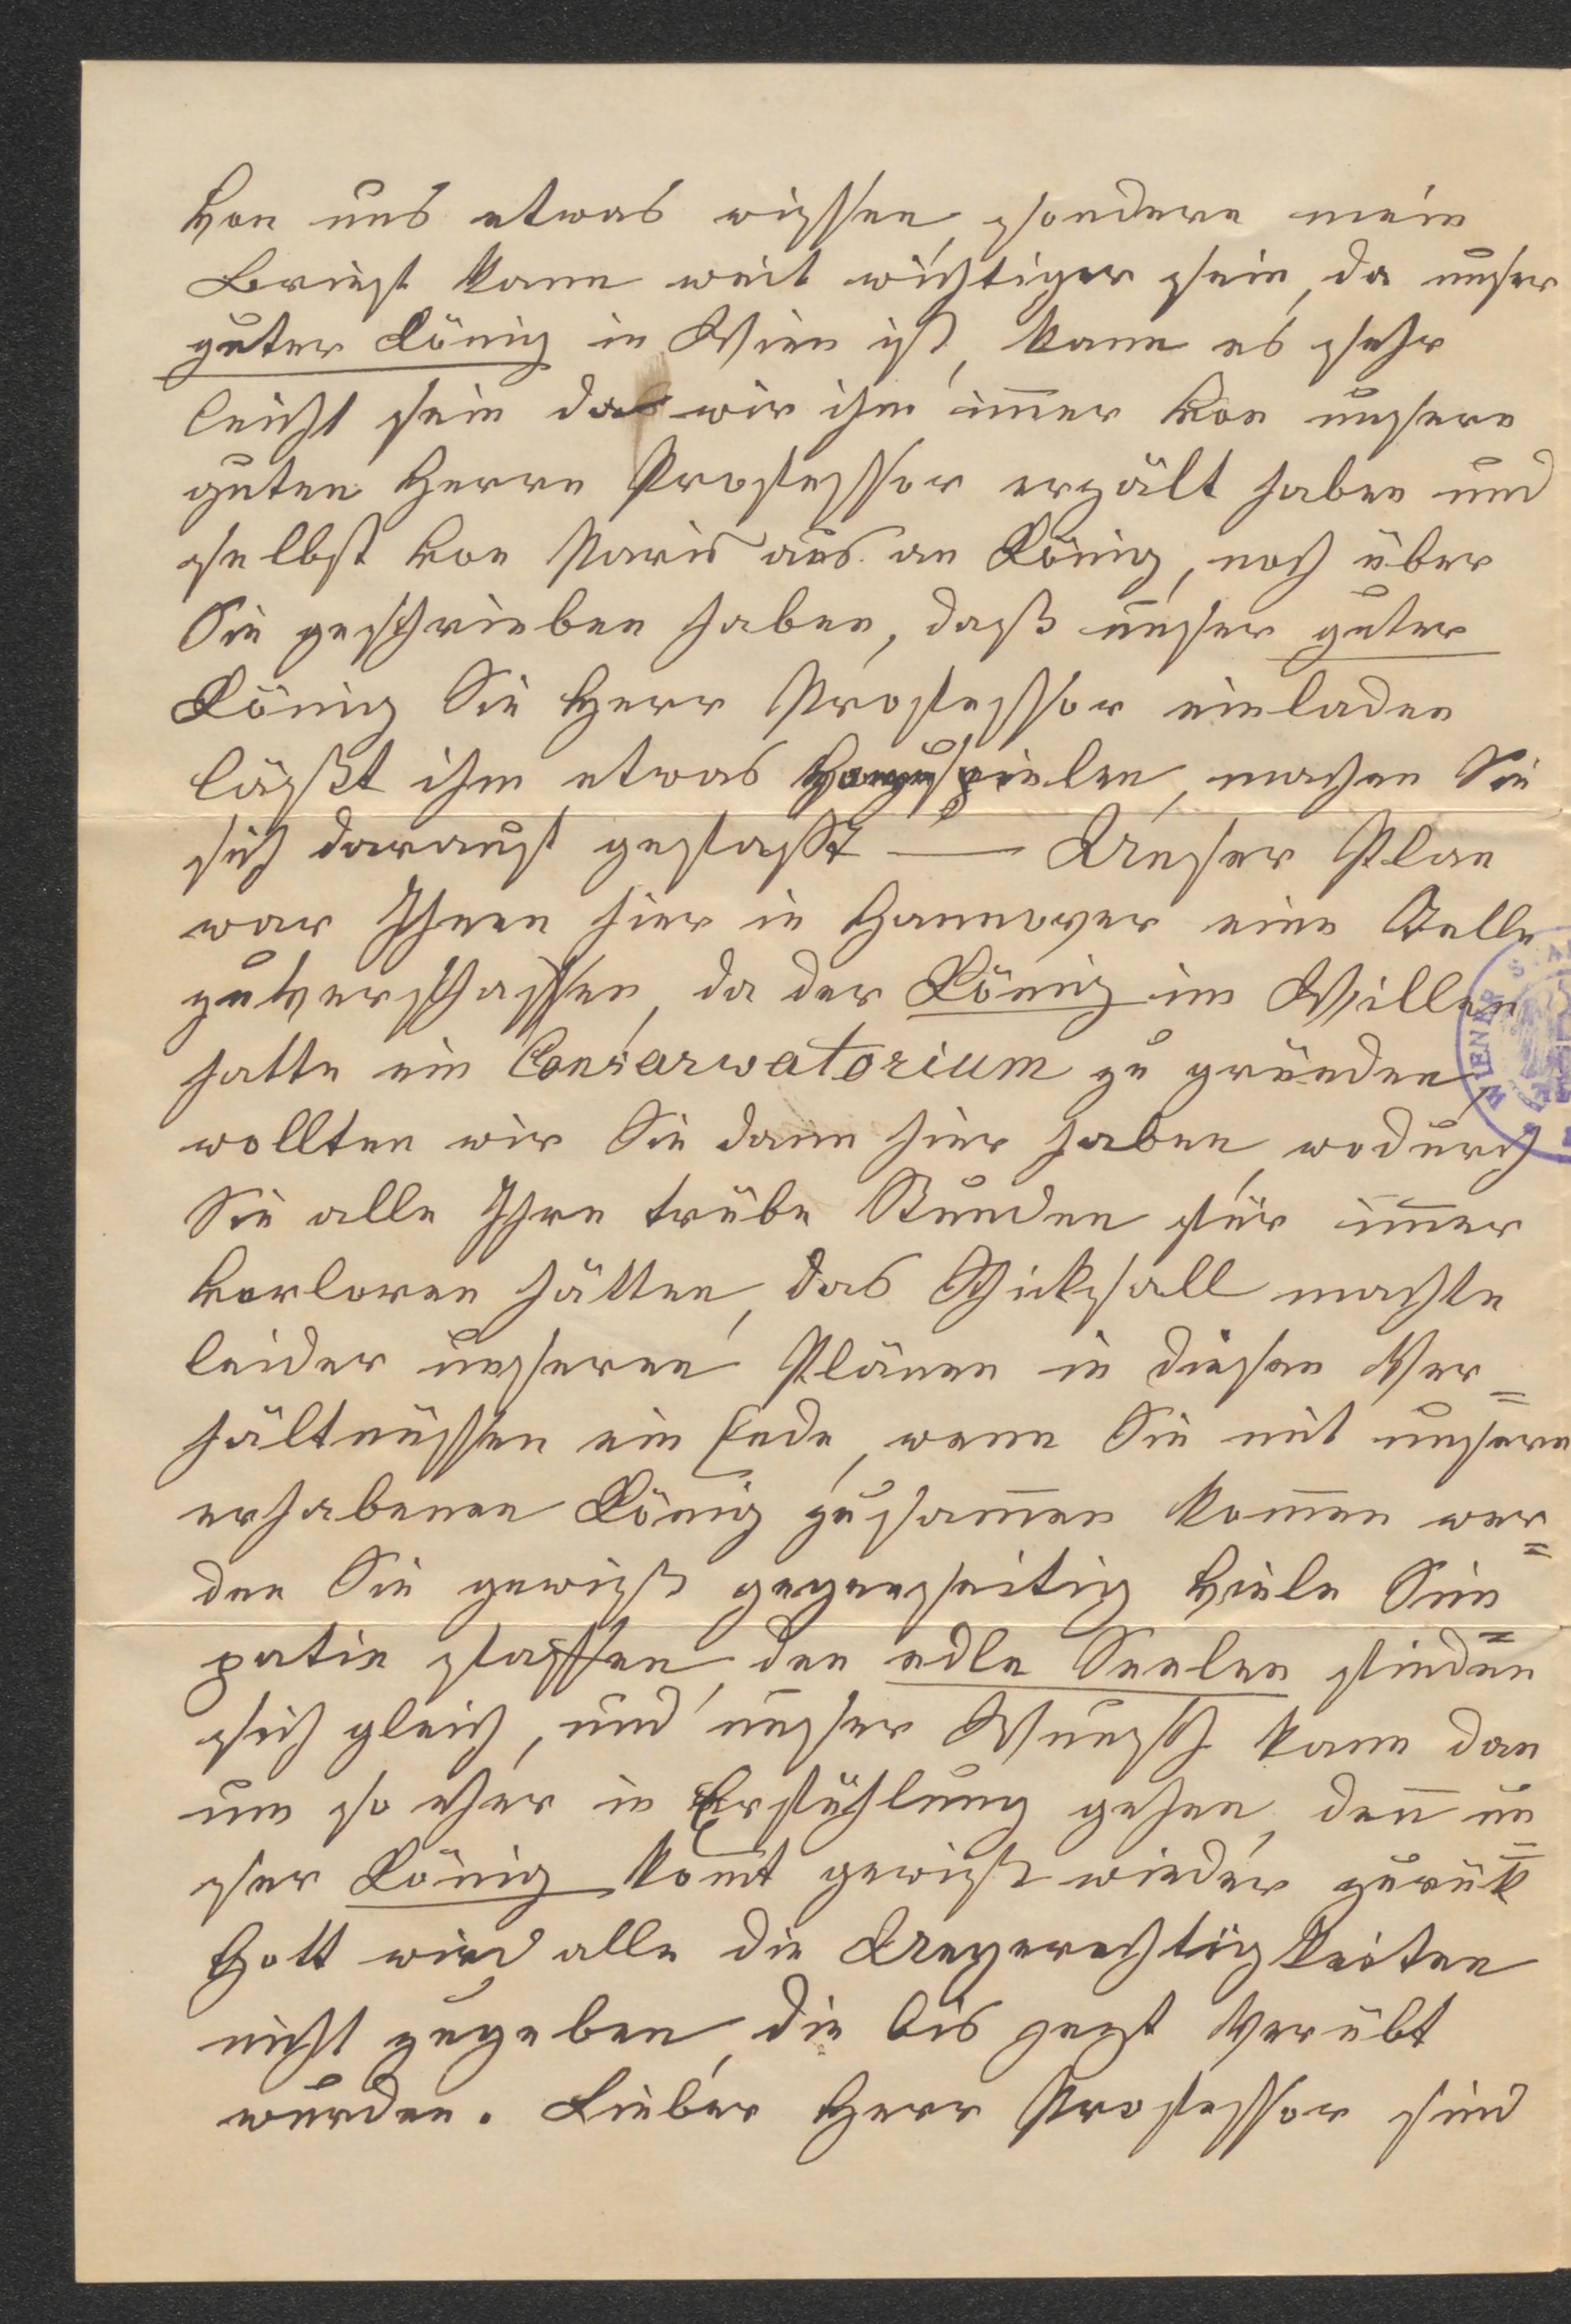 von uns etwas wissen, sondern mein
Brief kann weit wichtiger sein, da unser
guter König in Wien ist, kann es sehr
leicht sein das wir ihm im̅er von unsern
guten Herrn Professor erzält haben und
selbst von Paris aus an König, noch über
Sie geschrieben haben, daß unser guter
König Sie Herr Professor einladen
läßt ihm etwas vorzuspielen, machen Sie
sich darauf gefaßt — Unser Plan
war Ihnen hier in Hannover eine Stelle
zu verschaffen, da der König im Willen
hatte ein Consarwatorium zu gründen
wollten wir Sie dann hier haben, wodurch
Sie alle Ihre trübe Stunden für im̅er
verloren hätten, das Schicksall machte
leider unseren Plänen in diesen Ver=
hältnüssen ein Ende, wenn Sie mit unsern
erhabenen König zusam̅en kom̅en wer=
den Sie gewiß gegenseitig viele Sim=
patie fassen, den edle Seelen finden
sich gleich, und unser Wunsch kann dan
um so eher in Erfühlung gehen, den̅ un=
ser König kom̅t gewiß wieder zurük
Gott wird alle die Ungerechtigkeiten
nicht zugeben, die bis jezt verübt
wurden. Lieber Herr Professor sind
WIENER